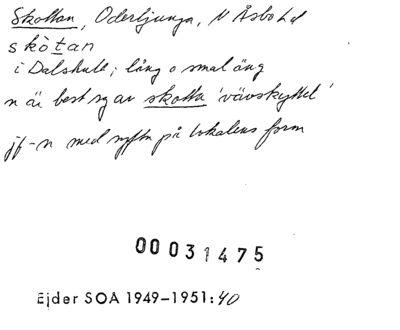 Skottan, Oderljunga, N Åsbo hd
skòtan
i Dalshult; lång o smal äng
n är best sg av skotta 'vävskyttel'
jf-n med syftn på lokalens form
00031475
Ejder SOA 1949-1951:40